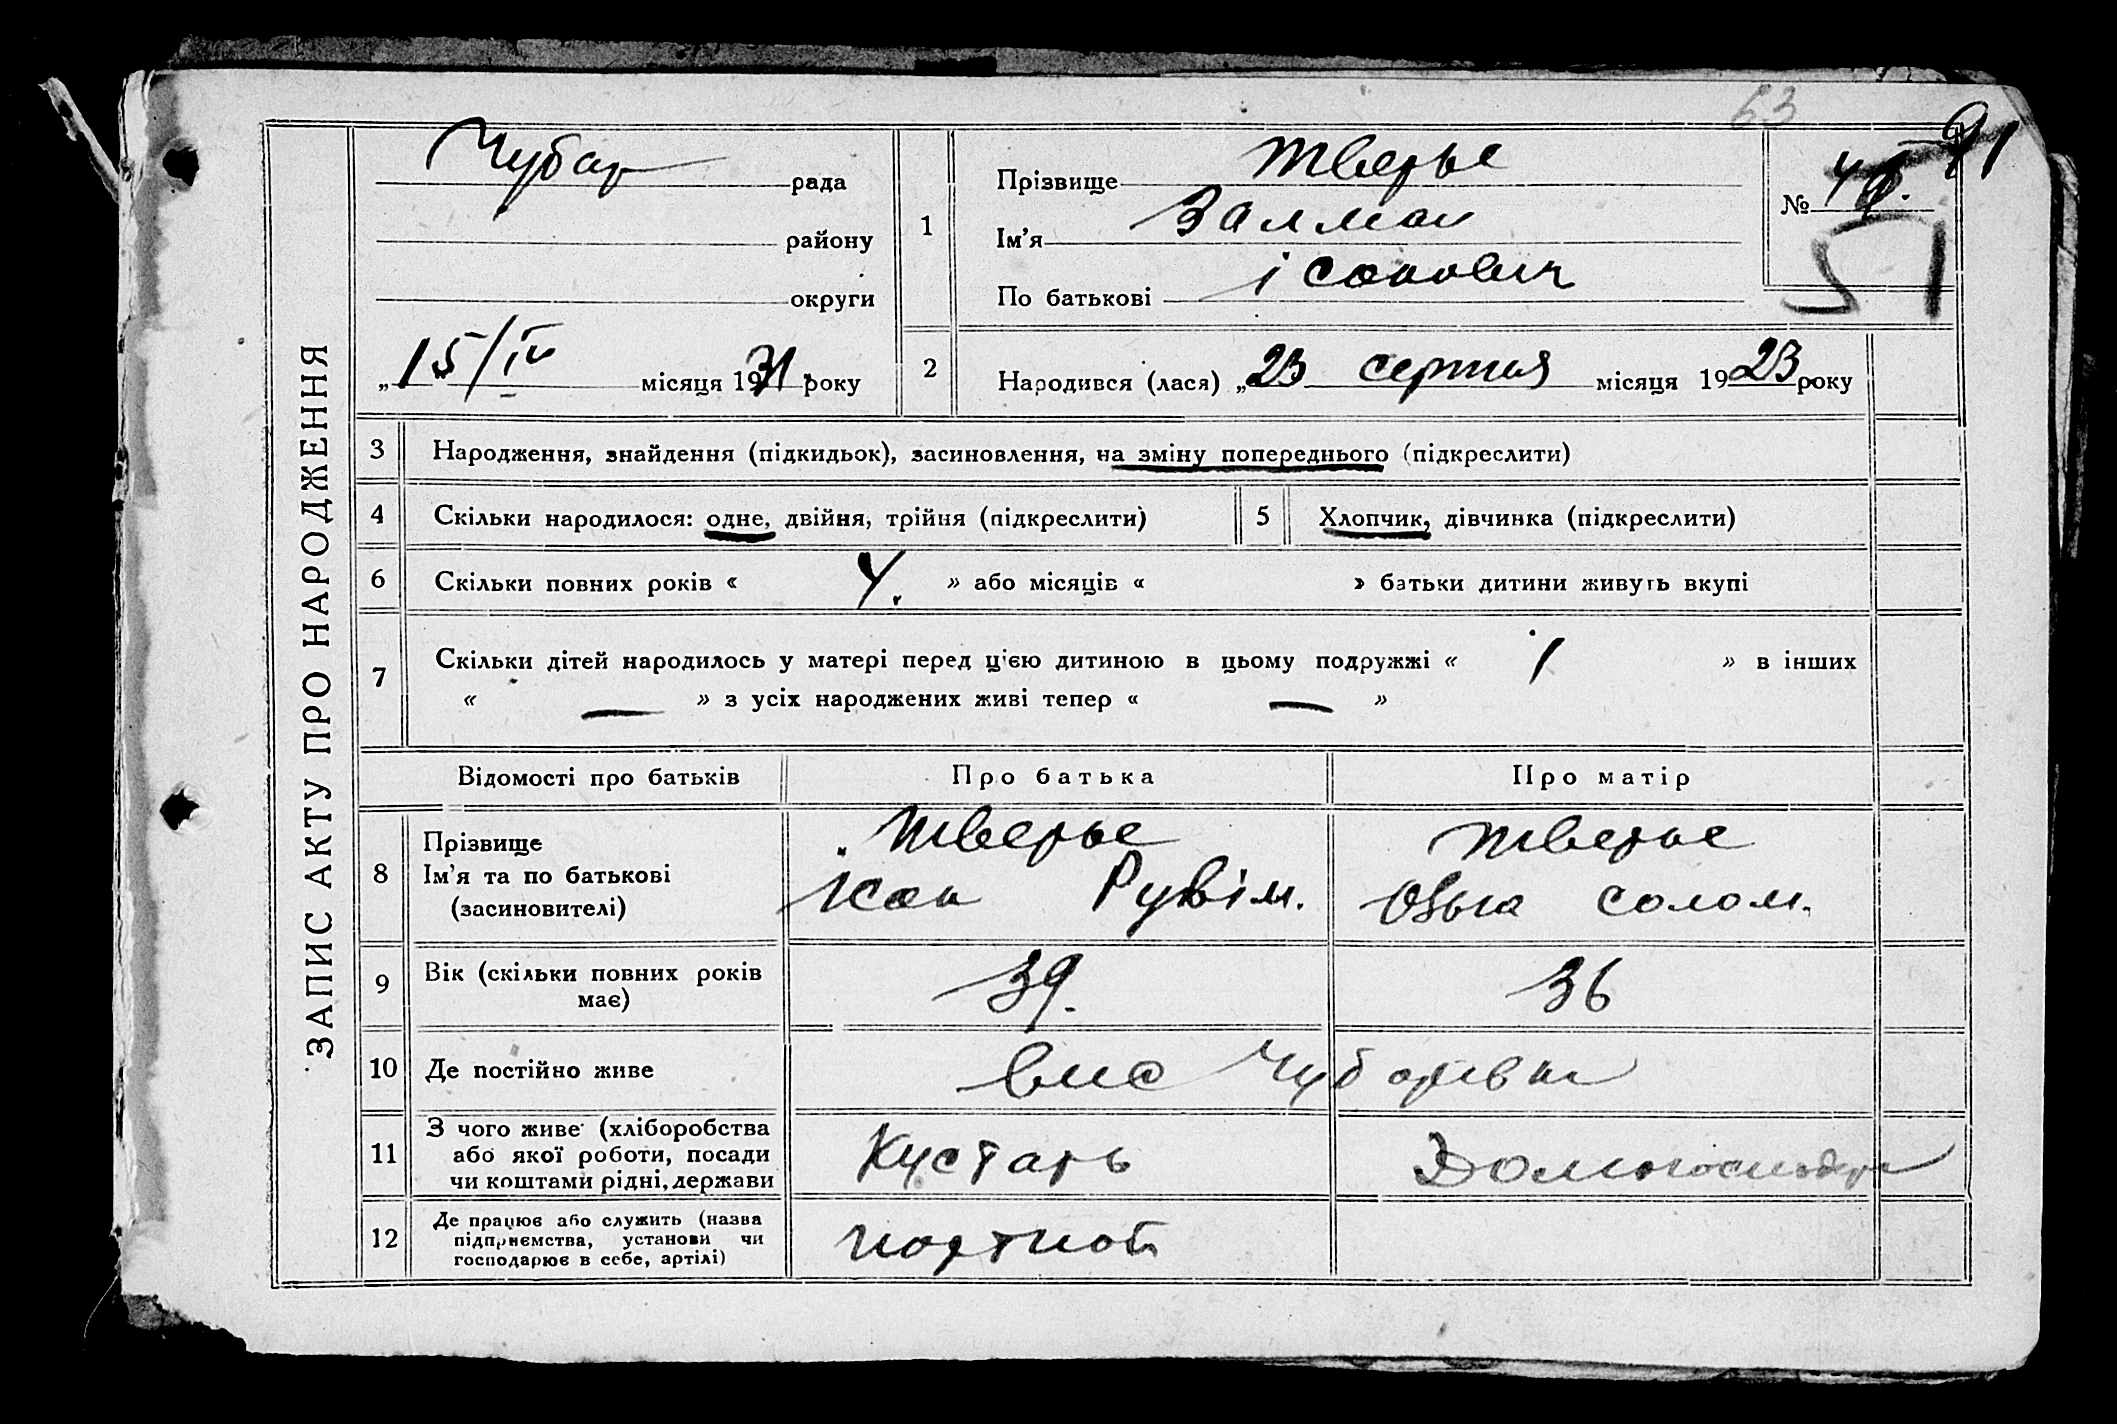 63
91
ЗАПИС АКТУ ПРО НАРОДЖЕННЯ
Чубар рада
району
округи
„15/IV місяця 1931 року
1
Прізвище Тверье
Ім'я Залман
По батькові Ісакович
№
51
2
Народився (лася) „23 серпня місяця 1923 року
3 Народження, знайдення (підкидьок), засиновлення, на зміну попереднього (підкреслити)
4 Скільки народилося: одне, двійня, трійня (підкреслити)
5 Хлопчик, дівчинка (підкреслити)
6 Скільки повних років « 4. » або місяців « » батьки дитини живуть вкупі
7 Скільки дітей народилось у матері перед цією дитиною в цьому подружжі « 1 » в інших
« — » з усіх народжених живі тепер « — »
Відомості про батьків Про батька Про матір
8 Прізвище
Ім'я та по батькові
(засиновителі)
Тверье
Ісак Рувім.
Тверье
солом.
9 Вік (скільки повних років
має)
39.
36
10 Де постійно живе
11 З чого живе (хліборобства
або якої роботи, посади
чи коштами рідні, держави
Кустарь
Домогосподар
12 Де працює або служить (назва
підприємства, установи чи
господарює в себе, артілі)
портной